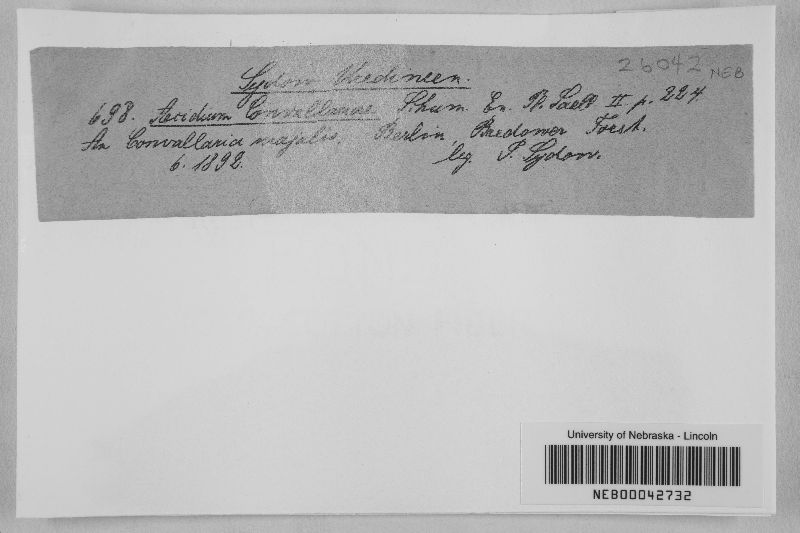 26042 NEB
Sydow Uredineen.
698. Aecidium Convallariae Schum. En. Pl. Saell II. p. 224
An Convallaria majalis. Berlin, Bredower Forst.
6. 1892. leg. P. Sydow.
University of Nebraska - Lincoln
NEB00042732